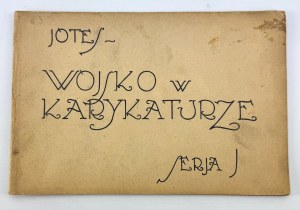 JOTES –
WOJSKO W
KARYKATURZE
SERJA I